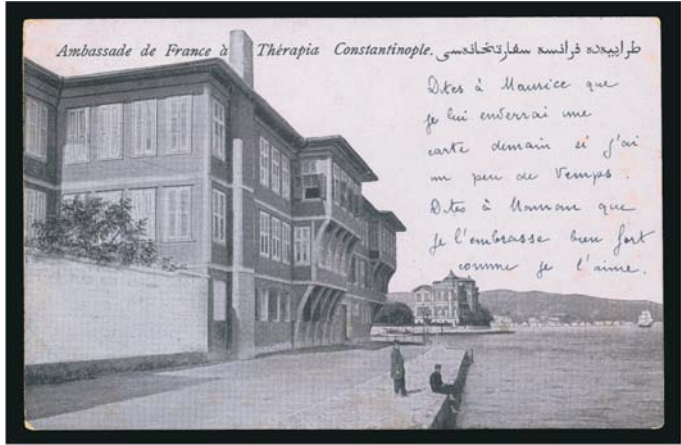 Ambassade de France à Thérapia Constantinople. طرابیه‌ده فرانسه سفارتخانه‌سی
Dites à Maurice que
je lui enverrai une
carte demain si j'ai
un peu de temps.
Dites à Maman que
je l'embrasse bien fort
comme je l'aime.